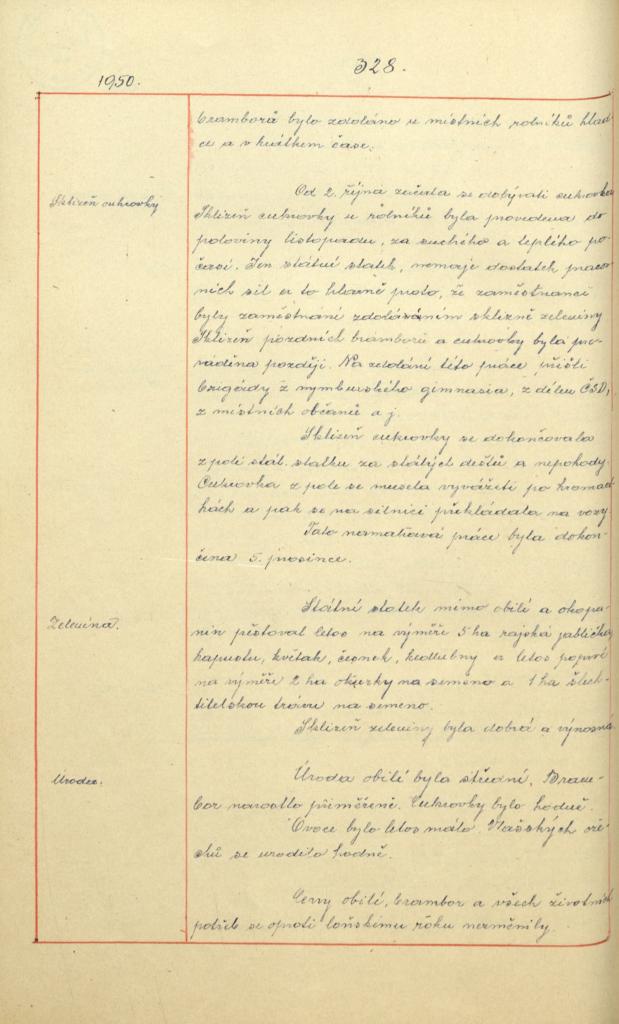 328.
1950.
bramborů bylo zdoláno u místních rolníků hlad-
ce a v krátkém čase.
Sklizeň cukrovky
Od 2. října začala se dobývati cukrovka
Sklizeň cukrovky u rolníků byla provedena do
poloviny listopadu, za suchého a teplého po-
časí. Jen státní statek, nemaje dostatek pracov-
ních sil a to hlavně proto, že zaměstnanci
byly zaměstnáni zdoláváním sklizně zeleniny
Sklizeň pozdních bramborů a cukrovky byla pro-
váděna později. Na zdolání této práce přišli
brigády z nymburského gimnasia, z dílen ČSD,
z místních občanů a j.
Sklizeň cukrovky se dokončovala
z polí stát. statku za stálých dešťů a nepohody.
Cukrovka z pole se musela vyvážeti po hromad-
kách a pak se na silnici překládala na vozy
Tato namahavá práce byla dokon-
čena 5. prosince.
Zelenina.
Státní statek mimo obilí a okopa-
nin pěstoval letos na výměře 5 ha rajská jablíčka
kapustu, květák, česnek, kedlubny a letos poprvé
na výměře 2 ha okurky na semeno a 1 ha šlech-
titelskou trávu na semeno.
Sklizeň zeleniny byla dobrá a výnosná
Úroda.
Úroda obilí byla střední. Bram-
bor narostlo přiměřeně. Cukrovky bylo hodně.
Ovoce bylo letos málo. Vlašských oře-
chů se urodilo hodně.
Ceny obilí, brambor a všech životních
potřeb se oproti loňskému roku nezměnily.